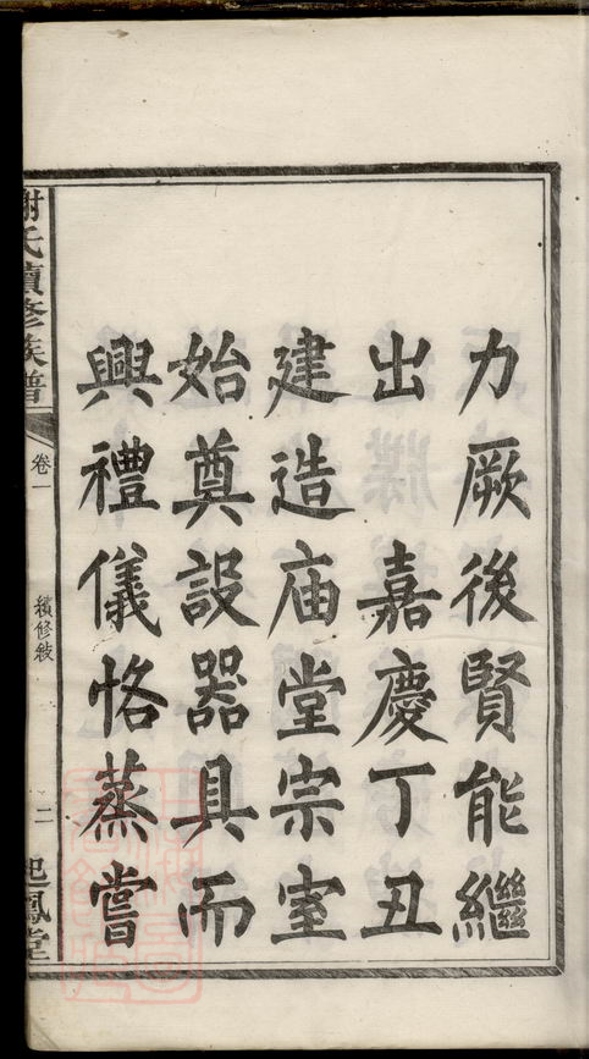 力厥後賢能繼
出　嘉慶丁丑
建造庙堂宗室
始奠設器具而
興禮儀恪蒸嘗
謝氏續修族譜
卷一
續修敍
二
起鳳堂